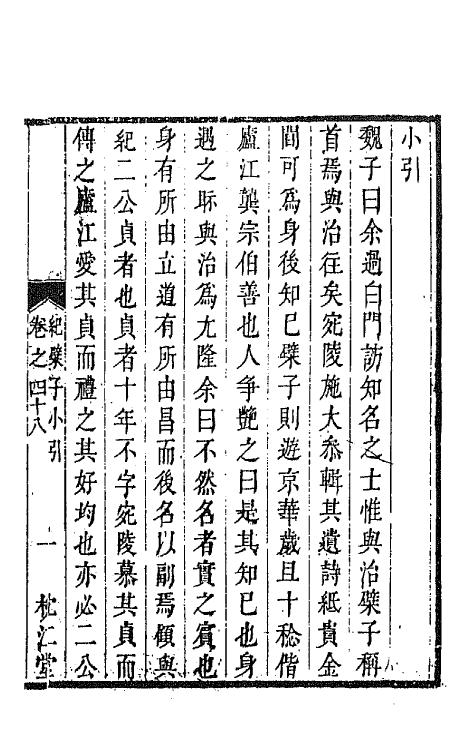 小引
魏子曰余過白門訪知名之士惟與治檗子稱
首焉與治往矣宛陵施大叅輯其遺詩紙貴金
閶可爲身後知已檗子則遊京華歲且十稔偕
廬江龔宗伯善也人争艶之曰是其知已也身
遇之眎與治爲尤隆余曰不然名者實之賓也
身有所由立道有所由昌而後名以副焉傾與
紀二公貞者也貞者十年不字宛陵慕其貞而
傳之廬江愛其貞而禮之其好均也亦必二公
紀檗子小引
卷之四十八
一
枕江堂